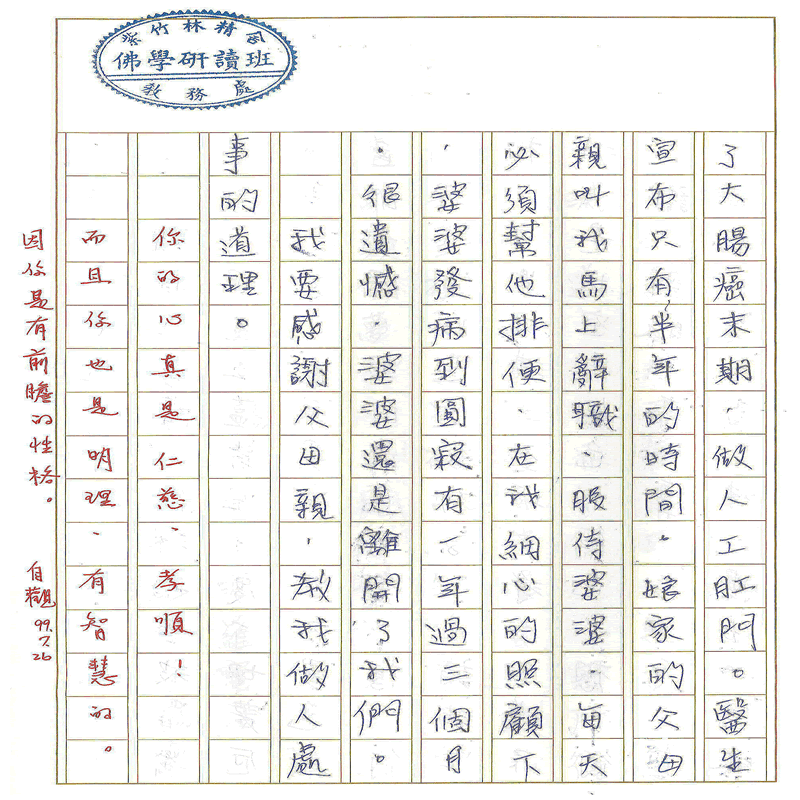 紫竹林精舍
佛學研讀班
教務處
了大腸癌末期，做人工肛門。醫生
宣布只有半年的時間。娘家的父母
親叫我馬上辭職，服侍婆婆，每天
必須幫他排便，在我細心的照顧下
，婆婆發病到圓寂有一年過三個月
，很遺憾，婆婆還是離開了我們。
我要感謝父母親，教我做人處
事的道理。
你的心真是仁慈、孝順！
而且你也是明理、有智慧的。
因你是有前瞻的性格。
自觀 99.7.26